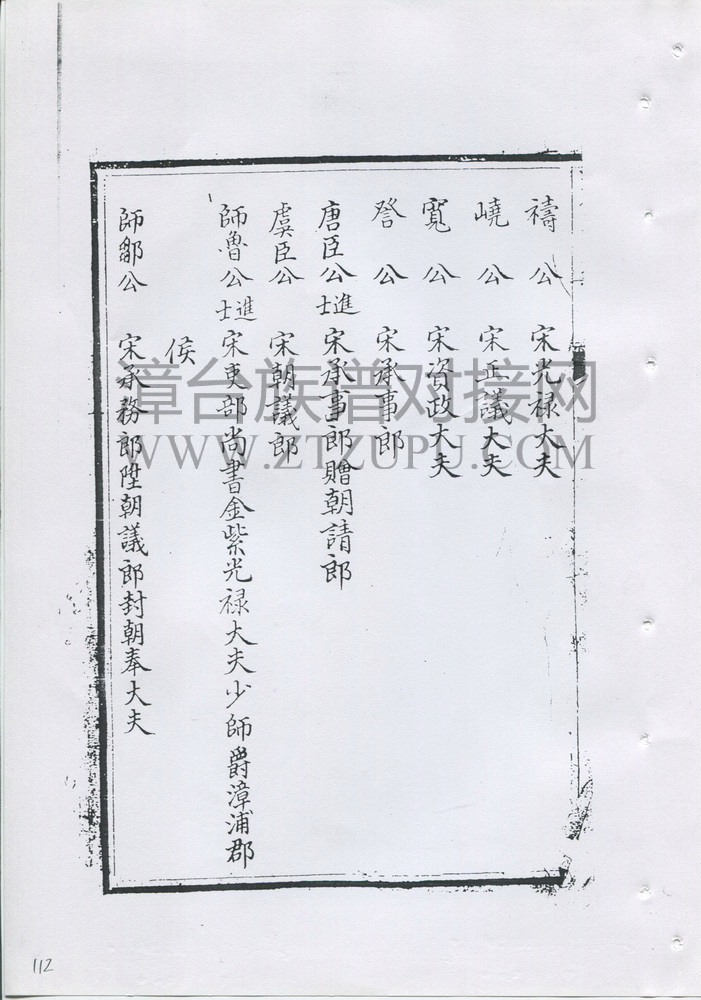 禱公 宋光禄大夫
嶢公 宋正議大夫
寬公 宋資政大夫
詧公 宋承事郎
唐臣公進士 宋承事郎贈朝請郎
虞臣公 宋朝議郎
師魯公進士 宋吏部尚書金紫光禄大夫少師爵漳浦郡
侯
師鄒公 宋承務郎陞朝議郎封朝奉大夫
漳台族谱对接网
WWW.ZTZUPU.COM
112